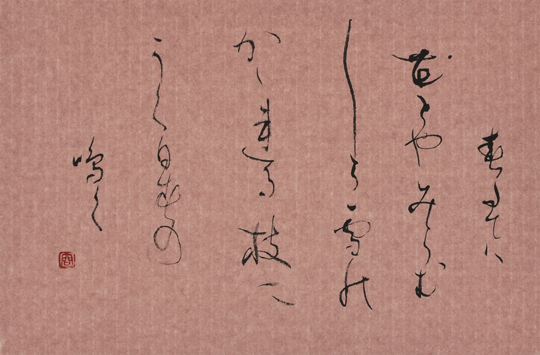 春たてハ
花とやみらむ
しら雪能
かゝ連る枝に
うく日春の
鳴く